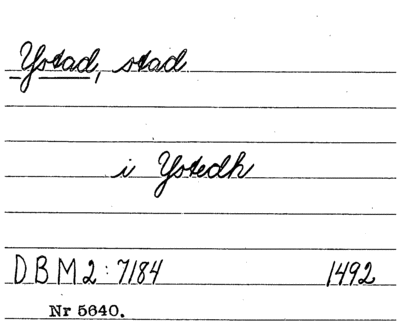 Ystad, stad
i Ystedh
DBM2:7184 1492
Nr 5640.